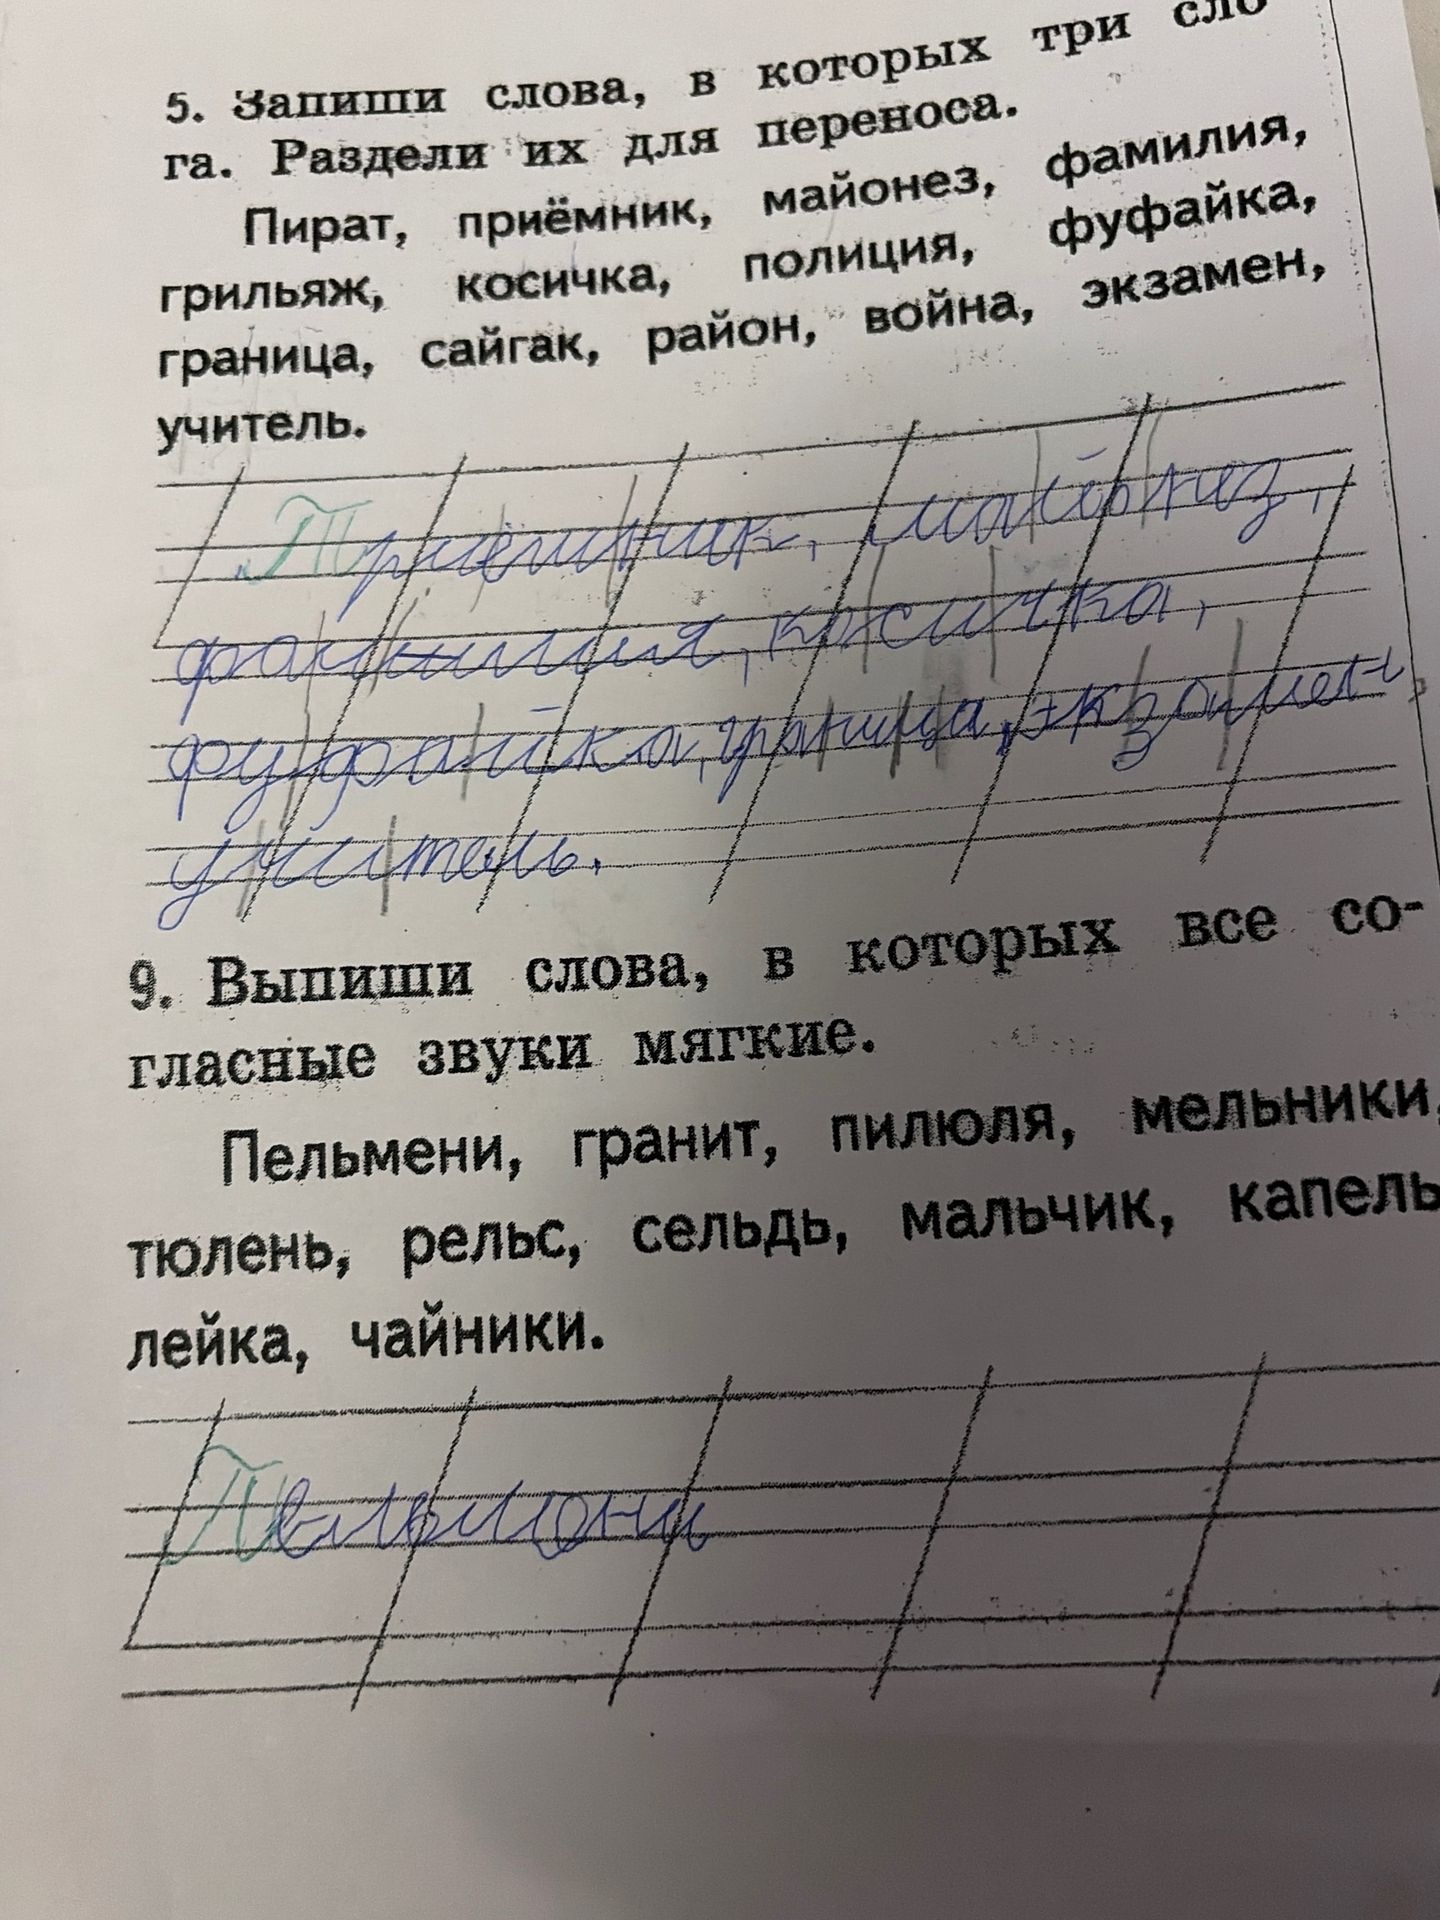 5. Запиши слова, в которых три сло
га. Раздели их для переноса.
Пират, приёмник, майонез, фамилия,
грильяж, косичка, полиция, фуфайка,
граница, сайгак, район, война, экзамен,
учитель.
Приёмник, майонез,
фамилия, косичка,
фуфайка, граница, экзамен,
учитель.
9. Выпиши слова, в которых все со-
гласные звуки мягкие.
Пельмени, гранит, пилюля, мельники,
тюлень, рельс, сельдь, мальчик, капель
лейка, чайники.
Пельмени